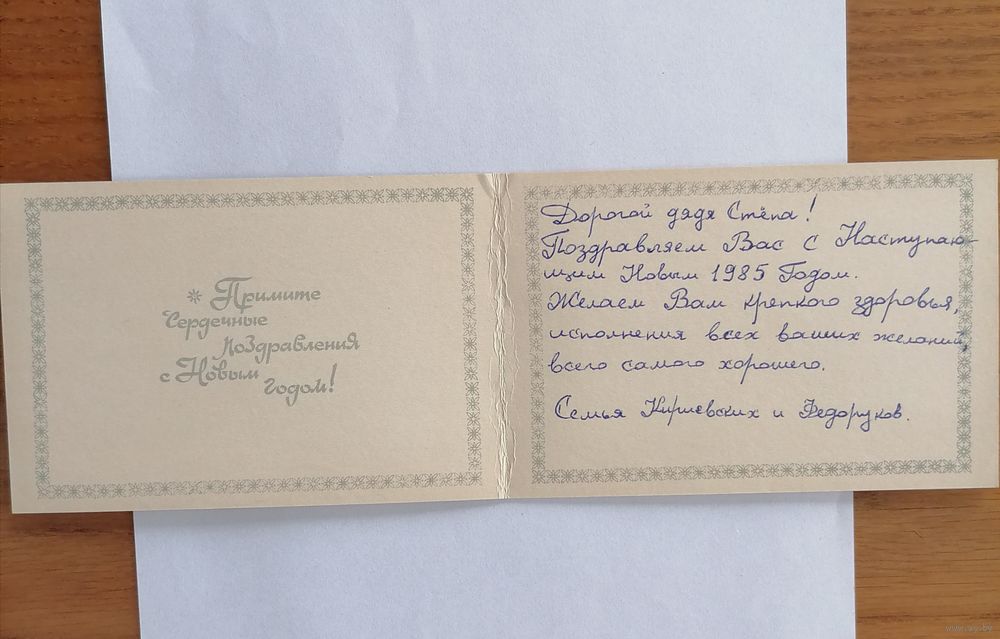 Примите
Сердечные
поздравления
с Новым
годом!
Дорогой дядя Стёпа!
Поздравляем Вас с Наступаю-
щим Новым 1985 Годом.
Желаем Вам крепкого здоровья,
исполнения всех ваших желаний,
всего самого хорошего.
Семья Киршевских и Федоруков.
www.ay.by